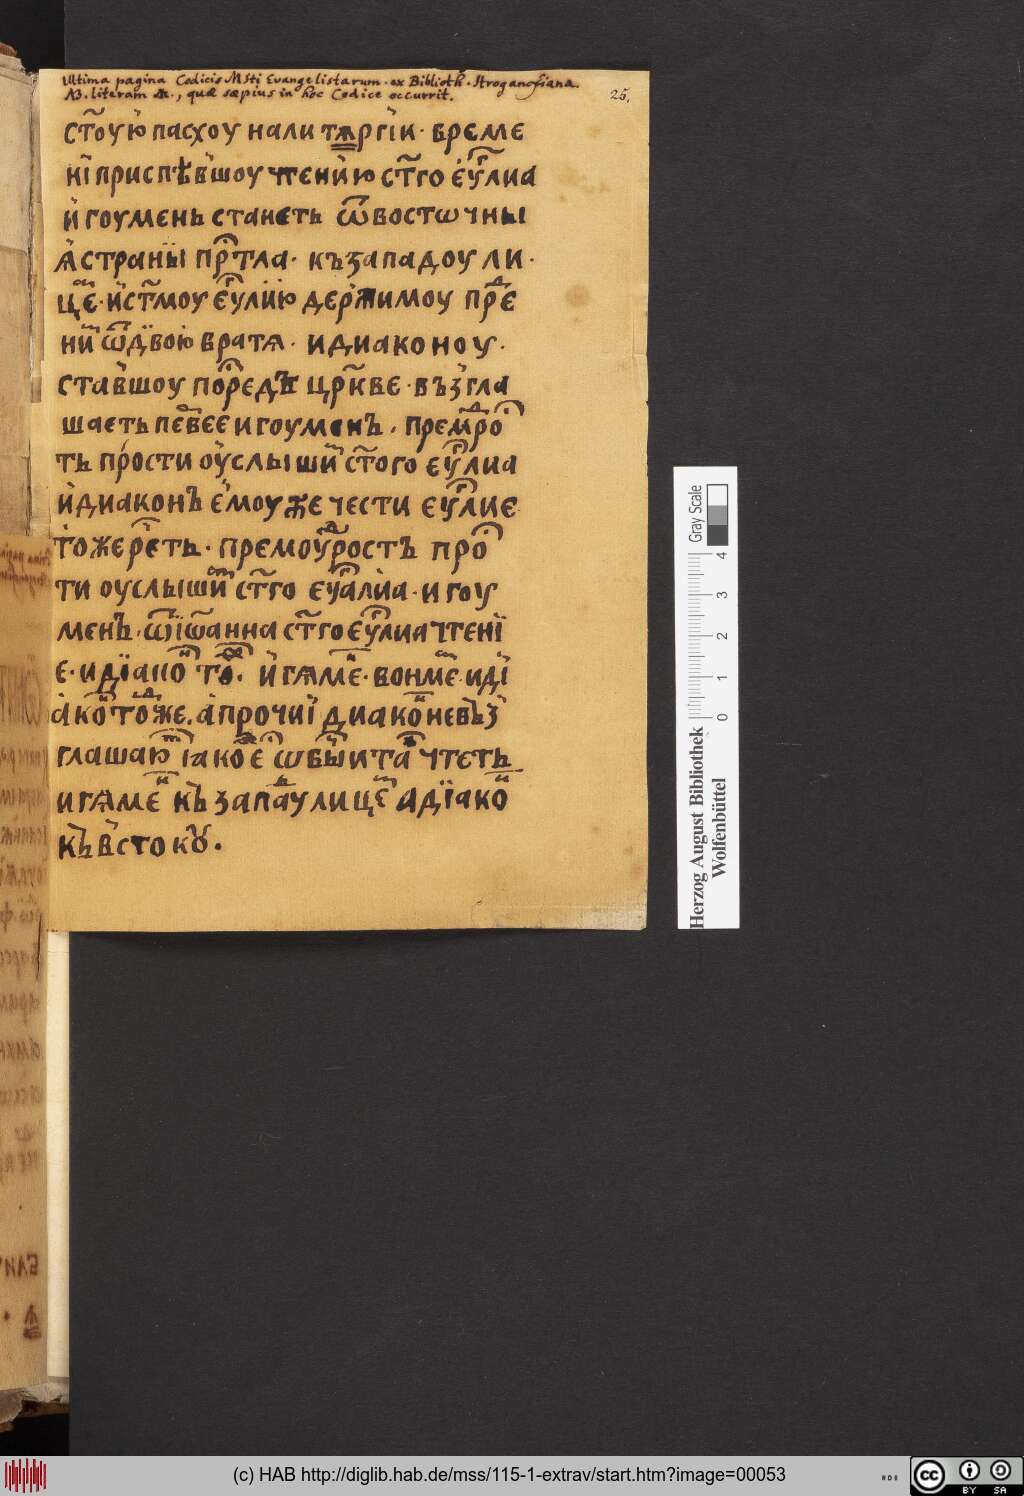 Ultima pagina Codicis MSti Evangelistarum. ex Biblioth. Stroganofiana.
NB. literam Ѫ., quæ sæpius in hoc Codice occurrit.
25.
ст҃оую пасхоу нали тѫргїи· времє
нї приспѣвшоу чтенїю ст҃го єу҃лиа
игоумєнь станєть ѿвостѡчны
ѧ страны пр҃тла· къзападоу ли·
ц҃е· ист҃моу єу҃лїю держимоу пр҃є
ний ѿдвою брата· идиаконоу·
ставшоу посредѣ цр҃квє· възгла
шаеть первеє игоумєнъ· премдро
ть прости оуслышим ст҃ого єу҃лиа
идиаконъ ємоу же чести єу҃лиє
тожерєть· премоудрость про
ти оуслышим ст҃го єуалїа· и гоу
мєнъ· ѿїѡанна ст҃го єу҃лиа чтенї
є· идїакон то· и гл҃мє· вонмє· идї
акон тоже. апрочиї диакони въз
глашаю їакоє ѡбыита чтєть
и гл҃мє къзападу лице адїако
къвстокꙋ·
Herzog August Bibliothek
Wolfenbüttel
Gray Scale
0 1 2 3 4
(c) HAB http://diglib.hab.de/mss/115-1-extrav/start.htm?image=00053
cc BY SA